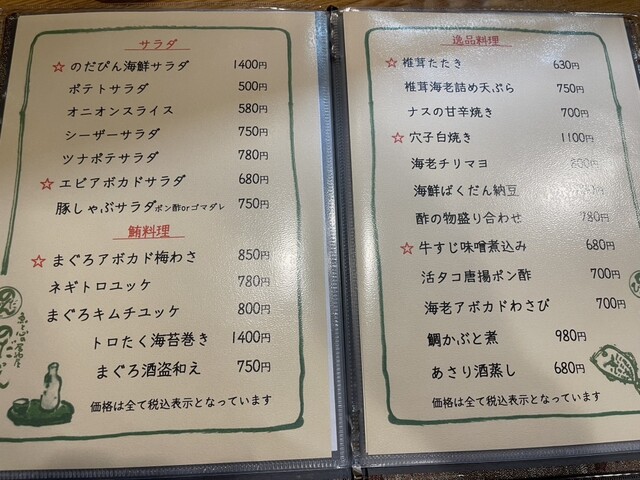 サラダ
☆ のだぴん海鮮サラダ 1400円
ポテトサラダ 500円
オニオンスライス 580円
シーザーサラダ 750円
ツナポテサラダ 780円
☆ エビアボカドサラダ 680円
豚しゃぶサラダポン酢orゴマダレ 750円
鮪料理
☆ まぐろアボカド梅わさ 850円
ネギトロユッケ 780円
まぐろキムチユッケ 800円
トロたく海苔巻き 1400円
まぐろ酒盗和え 750円
価格は全て税込表示となっています
逸品料理
☆ 椎茸たたき 630円
椎茸海老詰め天ぷら 750円
ナスの甘辛焼き 700円
☆ 穴子白焼き 1100円
海老チリマヨ
海鮮ばくだん納豆
酢の物盛り合わせ 780円
☆ 牛すじ味噌煮込み 680円
活タコ唐揚ポン酢 700円
海老アボカドわさび 700円
鯛かぶと煮 980円
あさり酒蒸し 680円
価格は全て税込表示となっています